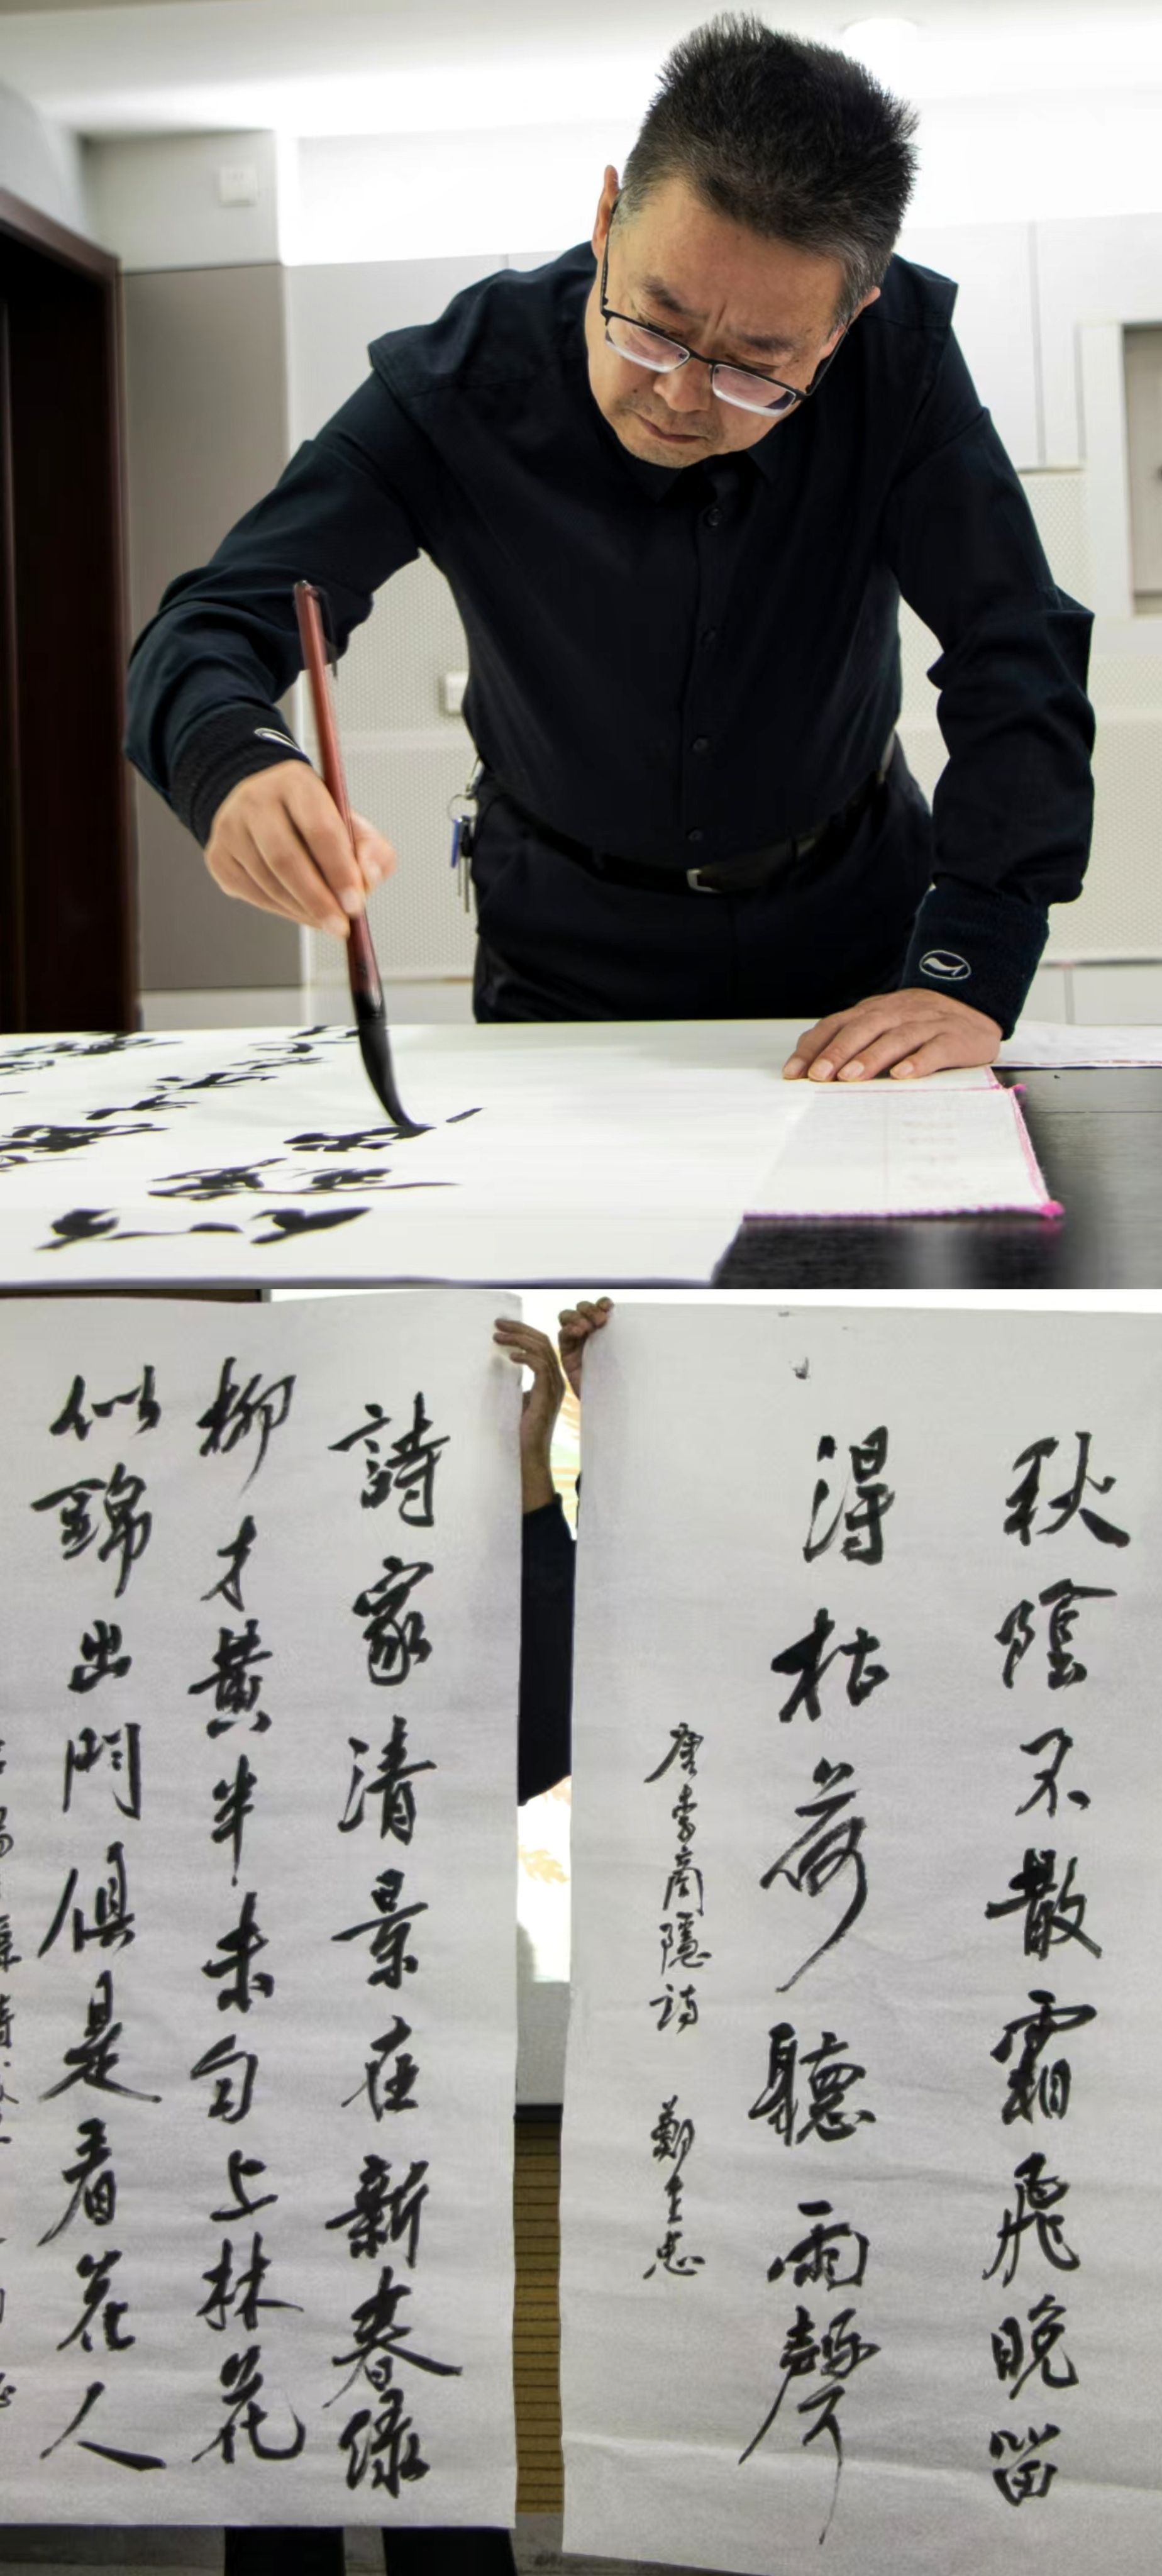 秋陰不散霜飛晚留
得枯荷聽雨聲
唐李商隱詩 鄭
詩家清景在新春緑
柳才黄半未匀上林花
似錦出門俱是看花人